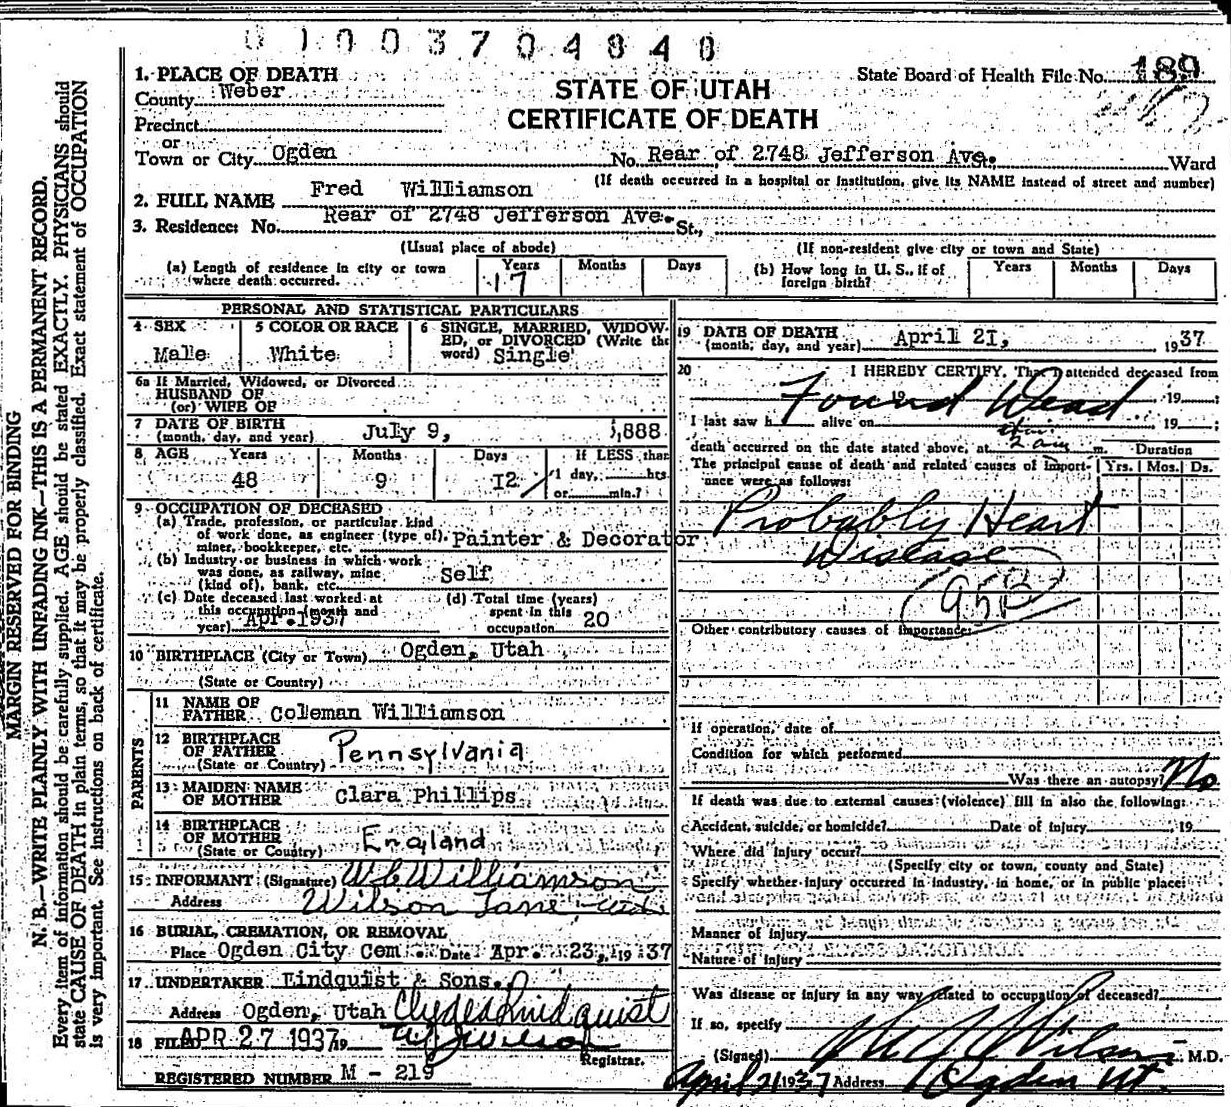 0 1 0 0 3 7 0 4 8 4 0
MARGIN RESERVED FOR BINDING
N. B.—WRITE PLAINLY WITH UNFADING INK—THIS IS A PERMANENT RECORD.
Every item of information should be carefully supplied. AGE should be stated EXACTLY. PHYSICIANS should
state CAUSE OF DEATH in plain terms, so that it may be properly classified. Exact statement of OCCUPATION
is very important. See instructions on back of certificate.
State Board of Health File No. 189
STATE OF UTAH
CERTIFICATE OF DEATH
1. PLACE OF DEATH
County Weber
Precinct
or
Town or City Ogden No. Rear of 2748 Jefferson Ave. Ward
(If death occurred in a hospital or institution, give its NAME instead of street and number)
2. FULL NAME Fred Williamson
3. Residence: No. Rear of 2748 Jefferson Ave. St.,
(Usual place of abode) (If non-resident give city or town and State)
(a) Length of residence in city or town where death occurred. Years 17 Months Days
(b) How long in U. S., if of foreign birth? Years Months Days
PERSONAL AND STATISTICAL PARTICULARS
4 SEX Male
5 COLOR OR RACE White
6 SINGLE, MARRIED, WIDOWED, or DIVORCED (Write the word) Single
6a If Married, Widowed, or Divorced
HUSBAND OF
(or) WIFE OF
7 DATE OF BIRTH
(month, day, and year) July 9, 1888
8 AGE Years 48 Months 9 Days 12 If LESS than
1 day, hrs.
or min.?
9 OCCUPATION OF DECEASED
(a) Trade, profession, or particular kind
of work done, as engineer (type of),
miner, bookkeeper, etc. Painter & Decorator
(b) Industry or business in which work
was done, as railway, mine
(kind of), bank, etc. Self
(c) Date deceased last worked at
this occupation (month and
year) Apr. 1937
(d) Total time (years)
spent in this
occupation 20
10 BIRTHPLACE (City or Town) Ogden, Utah
(State or Country)
PARENTS
11 NAME OF
FATHER Coleman Williamson
12 BIRTHPLACE
OF FATHER Pennsylvania
(State or Country)
13 MAIDEN NAME
OF MOTHER Clara Phillips
14 BIRTHPLACE
OF MOTHER England
(State or Country)
15 INFORMANT (Signature) W C Williamson
Address Wilson Lane
16 BURIAL, CREMATION, OR REMOVAL
Place Ogden City Cem. Date Apr. 23, 1937
17 UNDERTAKER Lindquist & Sons.
Address Ogden, Utah Clyde Lindquist
18 FILED APR 27 1937 19 Registrar.
REGISTERED NUMBER M - 219
19 DATE OF DEATH
(month, day, and year) April 21, 1937
20 I HEREBY CERTIFY, That I attended deceased from
Found Dead 19 ;
I last saw h alive on 19 ;
death occurred on the date stated above, at 2 am m. Duration
The principal cause of death and related causes of importance were as follows: Yrs. Mos. Ds.
Probably Heart
Disease
95B
Other contributory causes of importance:
If operation, date of
Condition for which performed
Was there an autopsy? No
If death was due to external causes (violence) fill in also the following:
Accident, suicide, or homicide? Date of injury , 19
Where did injury occur?
(Specify city or town, county and State)
Specify whether injury occurred in industry, in home, or in public place:
Manner of injury
Nature of injury
Was disease or injury in any way related to occupation of deceased?
If so, specify
(Signed) Wilson M.D.
April 21 1937 Address Ogden Ut.